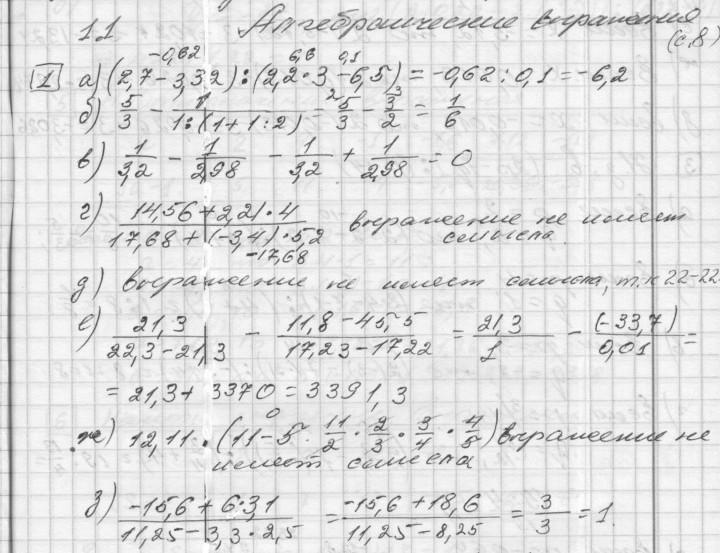 11 Алгебраические выражения
(с.8)
-0,62 6,6 0,1
1 а) (2,7 - 3,32) : (2,2 · 3 - 6,5) = -0,62 : 0,1 = -6,2
б) 5/3 - 1/(1:(1+1:2)) = 5/3 - 3/2 = 1/6
в) 1/3,2 - 1/2,98 - 1/3,2 + 1/2,98 = 0
г) (14,56 + 2,21 · 4)/(17,68 + (-3,4) · 5,2) выражение не имеет
смысла.
-17,68
д) выражение не имеет смысла, т.к 22-22
е) 21,3/(22,3 - 21,3) - (11,8 - 45,5)/(17,23 - 17,22) = 21,3/1 - (-33,7)/0,01 =
= 21,3 + 3370 = 3391,3
0
ж) 12,11 · (11 - 5 · 11/2 · 2/3 · 3/4 · 4/5) выражение не
имеет смысла
з) (-15,6 + 6·3,1)/(11,25 - 3,3 · 2,5) = (-15,6 + 18,6)/(11,25 - 8,25) = 3/3 = 1.